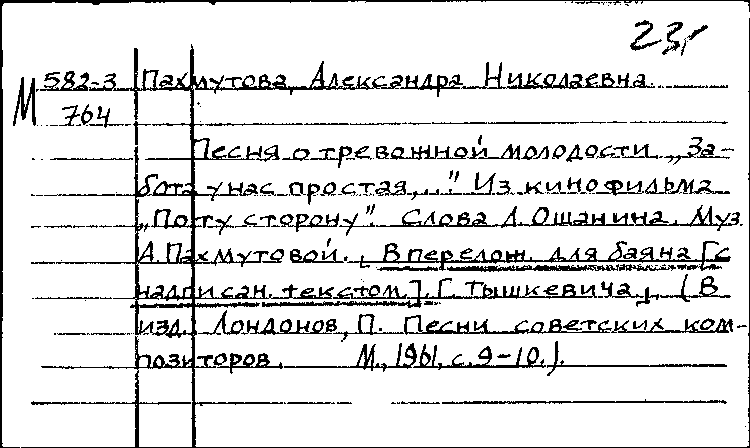 23г
М 582-3 Пахмутова, Александра Николаевна.
764
Песня о тревожной молодости „За-
бота у нас простая,..." Из кинофильма
„По ту сторону". Слова Л. Ошанина. Муз.
А. Пахмутовой. [В перелож. для баяна [с
надписан. текстом]. Г. Тышкевича.] (В
изд. Лондонов, П. Песни советских ком-
позиторов. М., 1961, с. 9-10.).